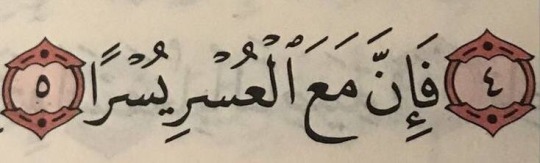 ٤ فَإِنَّ مَعَ ٱلْعُسْرِ يُسْرًا ٥